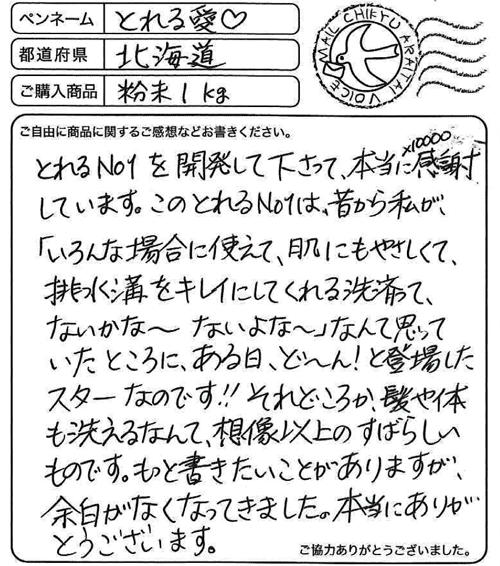 ペンネーム とれる愛♡
都道府県 北海道
ご購入商品 粉末1kg
MAIL CHIKYU ARAITAI VOICE
ご自由に商品に関するご感想などお書きください。
×10000
とれるNo1を開発して下さって、本当に感謝
しています。このとれるNo1は、昔から私が、
「いろんな場合に使えて、肌にもやさしくて、
排水溝をキレイにしてくれる洗済って、
ないかな〜 ないよな〜」なんて思って
いたところに、ある日、ど〜ん!と登場した
スターなのです!! それどころか、髪や体
も洗えるなんて、想像以上のすばらしい
ものです。もっと書きたいことがありますが、
余白がなくなってきました。本当にありが
とうございます。
ご協力ありがとうございました。